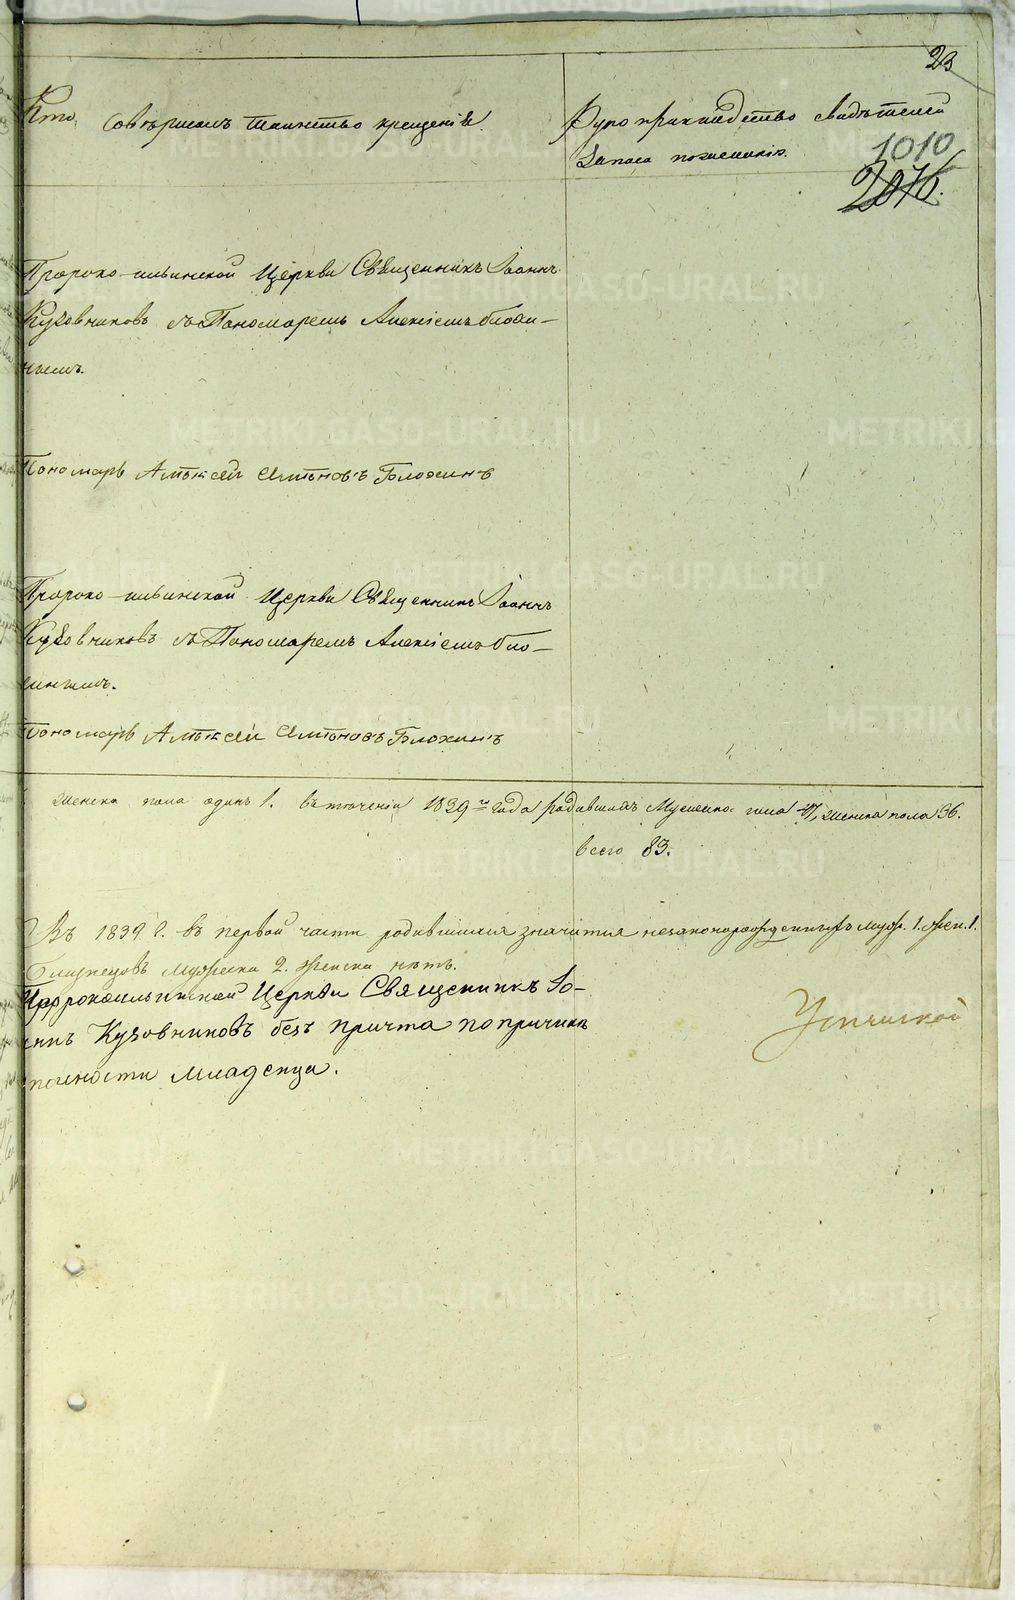 23
Кто совершалъ таинство крещенія.
Рукоприкладство свидѣтелей
записи по желанію.
1010
2076.
Пророко-ильинской Церкви Священникъ Іоаннъ
Кузовниковъ съ Пономаремъ Алексіемъ Блохи-
нымъ.
Пономарь Алѣксей Антоновъ Блохинъ
Пророко-ильинской Церкви Священникъ Іоаннъ
Кузовниковъ съ Пономаремъ Алексіемъ Бло-
хинымъ.
Пономарь Алѣксей Антоновъ Блохинъ
женска пола одинъ 1. въ теченіи 1839 го года родившихъ Мужеска пола 47, женска пола 36.
всего 83.
Въ 1839 г. въ первой части родившихся значится незаконорожденныхъ муж. 1. жен. 1.
Близнецовъ мужеска 2. женска нѣтъ.
Пророкоильинской Церкви Священникъ Іо-
аннъ Кузовниковъ безъ причта по причинѣ
младенца.
METRIKI.GASO-URAL.RU